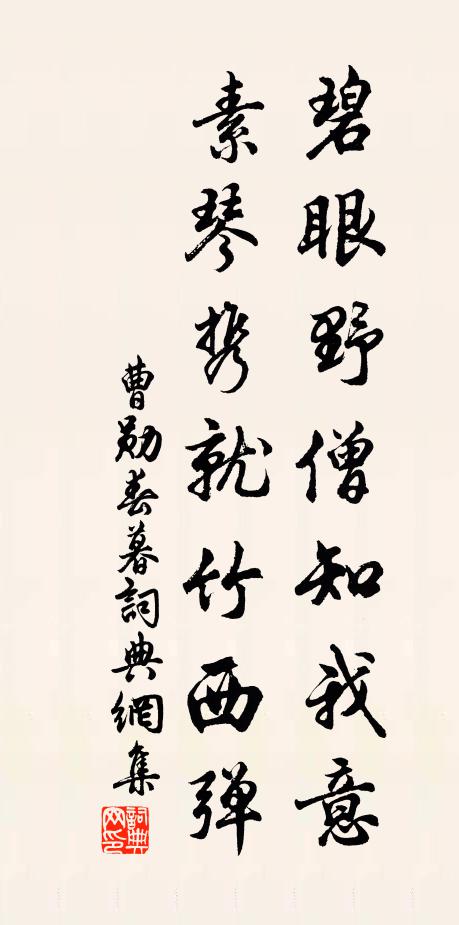 碧眼野僧知我意
素琴携就竹西弹
曹勛春暮詞典網集
詞典网印